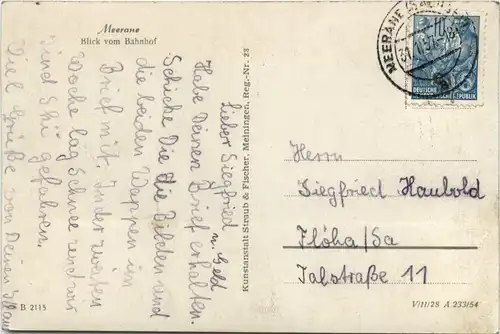 Meerane
Blick vom Bahnhof
Lieber Siegfried
Habe Deinen Brief erhalten.
u. Geld
Schicke Die die Bilder und
die beiden Wappen im
Brief mit. In der zweiten
Woche lag Schnee und wir
sind Ski gefahren.
Viel Grüße von Deinen
B 2115
Kunstanstalt Straub & Fischer, Meiningen, Reg.-Nr. 23
MEERANE
DEUTSCHE
DEMOKRATISCHE REPUBLIK
Herrn
Siegfried Haubold
Flöha/Sa
Talstraße 11
V/11/28 A 233/54